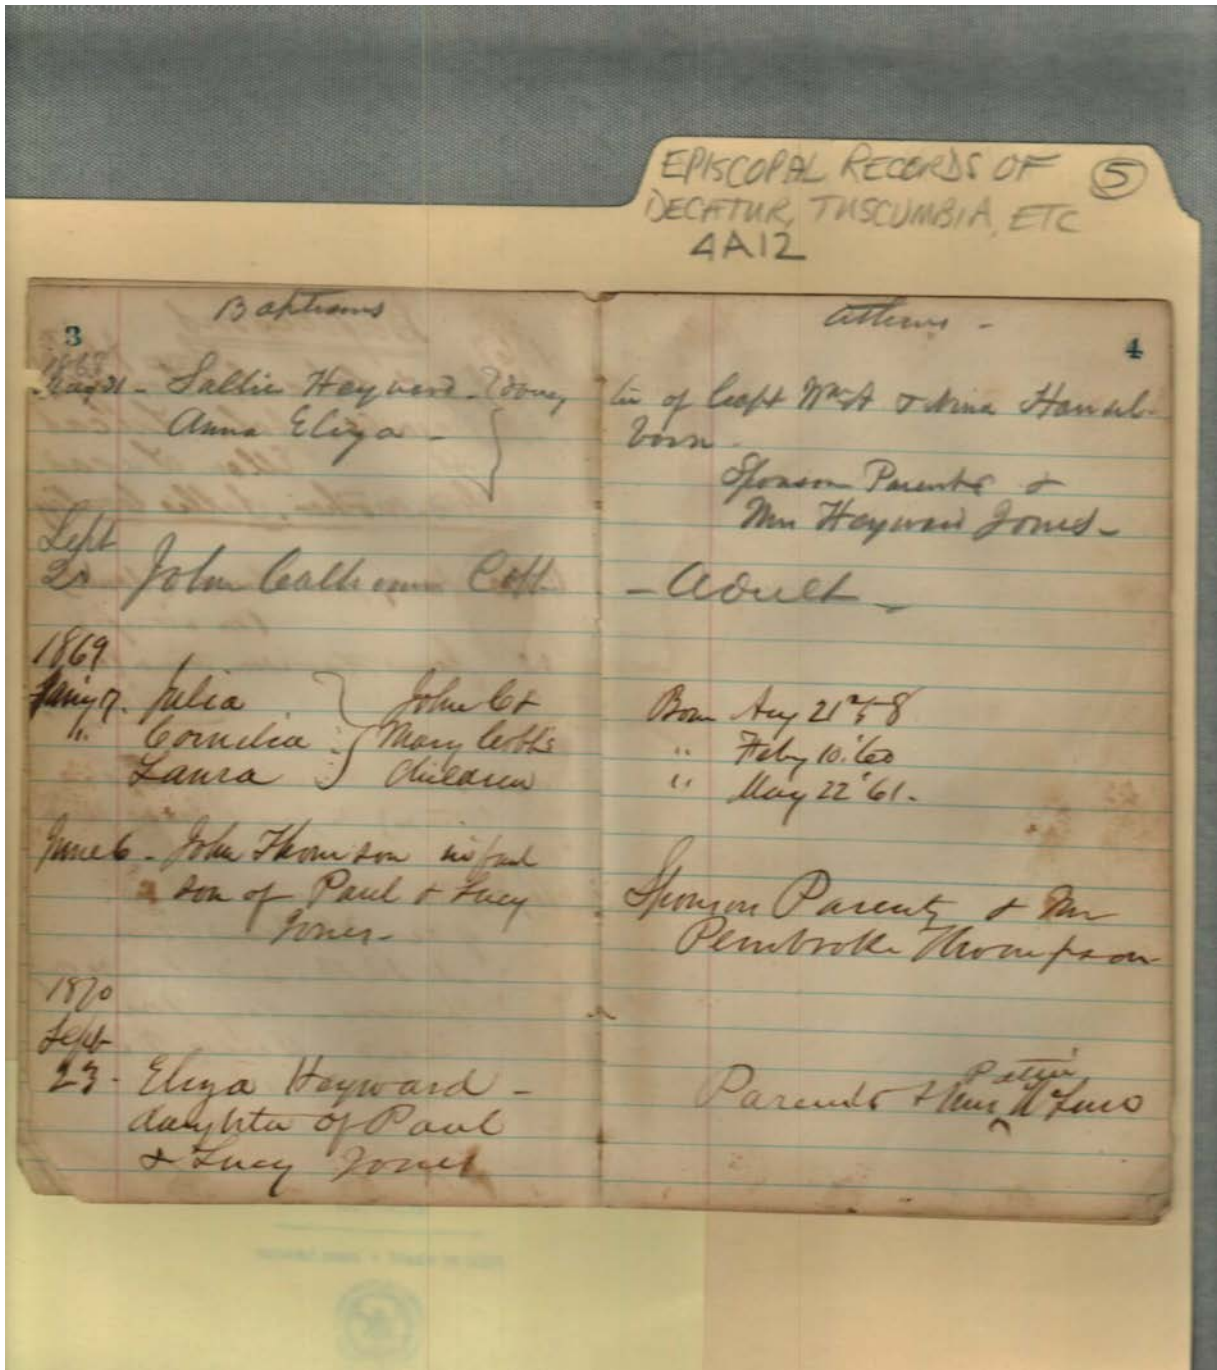 EPISCOPAL RECORDS OF
DECATUR, TUSCUMBIA, ETC
4A12
5
Baptisms
3
1868
May 31 - Sallie Hayward -
Anna Eliza -
Sept
20 John Calhoun Cobb
1869
Jany 7. Julia John C &
" Cornelia Mary Cobb's
Laura Children
June 6 - John Thomson infant
son of Paul & Lucy
Jones -
1870
Sept
23 - Eliza Hayward -
daughter of Paul
& Lucy Jones
Athens -
4
of Capt Wm A & Nina
born -
Sponsors Parents &
Mrs Hayward Jones -
- Adult -
Born Aug 21st 58
" Feby 10. '60
" May 22 '61.
Sponsors Parents & Mr
Pembroke Thompson
Parents & Miss